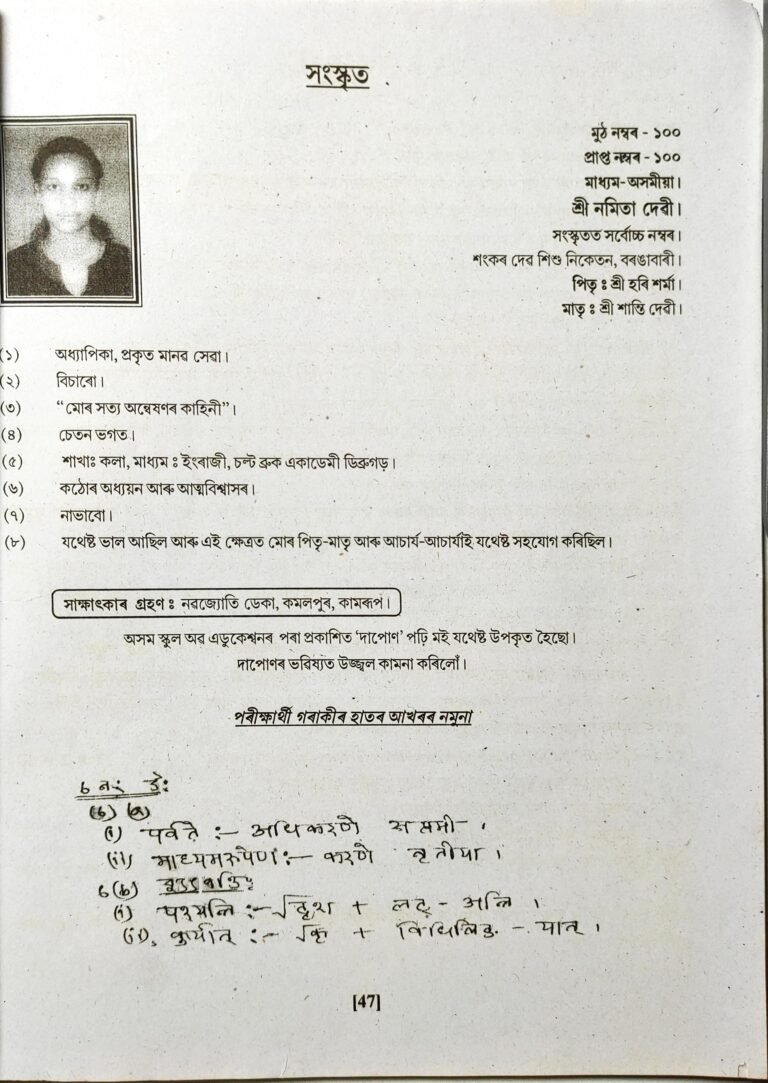 সংস্কৃত
মুঠ নম্বৰ - ১০০
প্ৰাপ্ত নম্বৰ - ১০০
মাধ্যম-অসমীয়া।
শ্ৰী নমিতা দেৱী।
সংস্কৃতত সৰ্বোচ্চ নম্বৰ।
শংকৰ দেৱ শিশু নিকেতন, বৰঙাবাৰী।
পিতৃ ঃ শ্ৰী হৰি শৰ্মা।
মাতৃ ঃ শ্ৰী শান্তি দেৱী।
(১) অধ্যাপিকা, প্ৰকৃত মানৱ সেৱা।
(২) বিচাৰো।
(৩) “মোৰ সত্য অন্বেষণৰ কাহিনী”।
(৪) চেতন ভগত।
(৫) শাখাঃ কলা, মাধ্যম ঃ ইংৰাজী, চল্ট ব্ৰুক একাডেমী ডিব্ৰুগড়।
(৬) কঠোৰ অধ্যয়ন আৰু আত্মবিশ্বাসৰ।
(৭) নাভাবো।
(৮) যথেষ্ট ভাল আছিল আৰু এই ক্ষেত্ৰত মোৰ পিতৃ-মাতৃ আৰু আচাৰ্য-আচাৰ্যাই যথেষ্ট সহযোগ কৰিছিল।
সাক্ষাৎকাৰ গ্ৰহণ ঃ নৱজ্যোতি ডেকা, কমলপুৰ, কামৰূপ।
অসম স্কুল অৱ এডুকেশ্বনৰ পৰা প্ৰকাশিত ‘দাপোণ’ পঢ়ি মই যথেষ্ট উপকৃত হৈছো।
দাপোণৰ ভবিষ্যত উজ্জ্বল কামনা কৰিলোঁ।
পৰীক্ষাৰ্থী গৰাকীৰ হাতৰ আখৰৰ নমুনা
(i) पर्वते :- अधिकरणे सप्तमी ।
(ii) माध्यमरुपेण :- करणे तृतीया ।
6 (b)
(i) पश्यन्ति :- √दृश + लट् - अन्ति ।
(ii) कुर्यात् :- √कृ + विधिलिङ - यात् ।
[47]